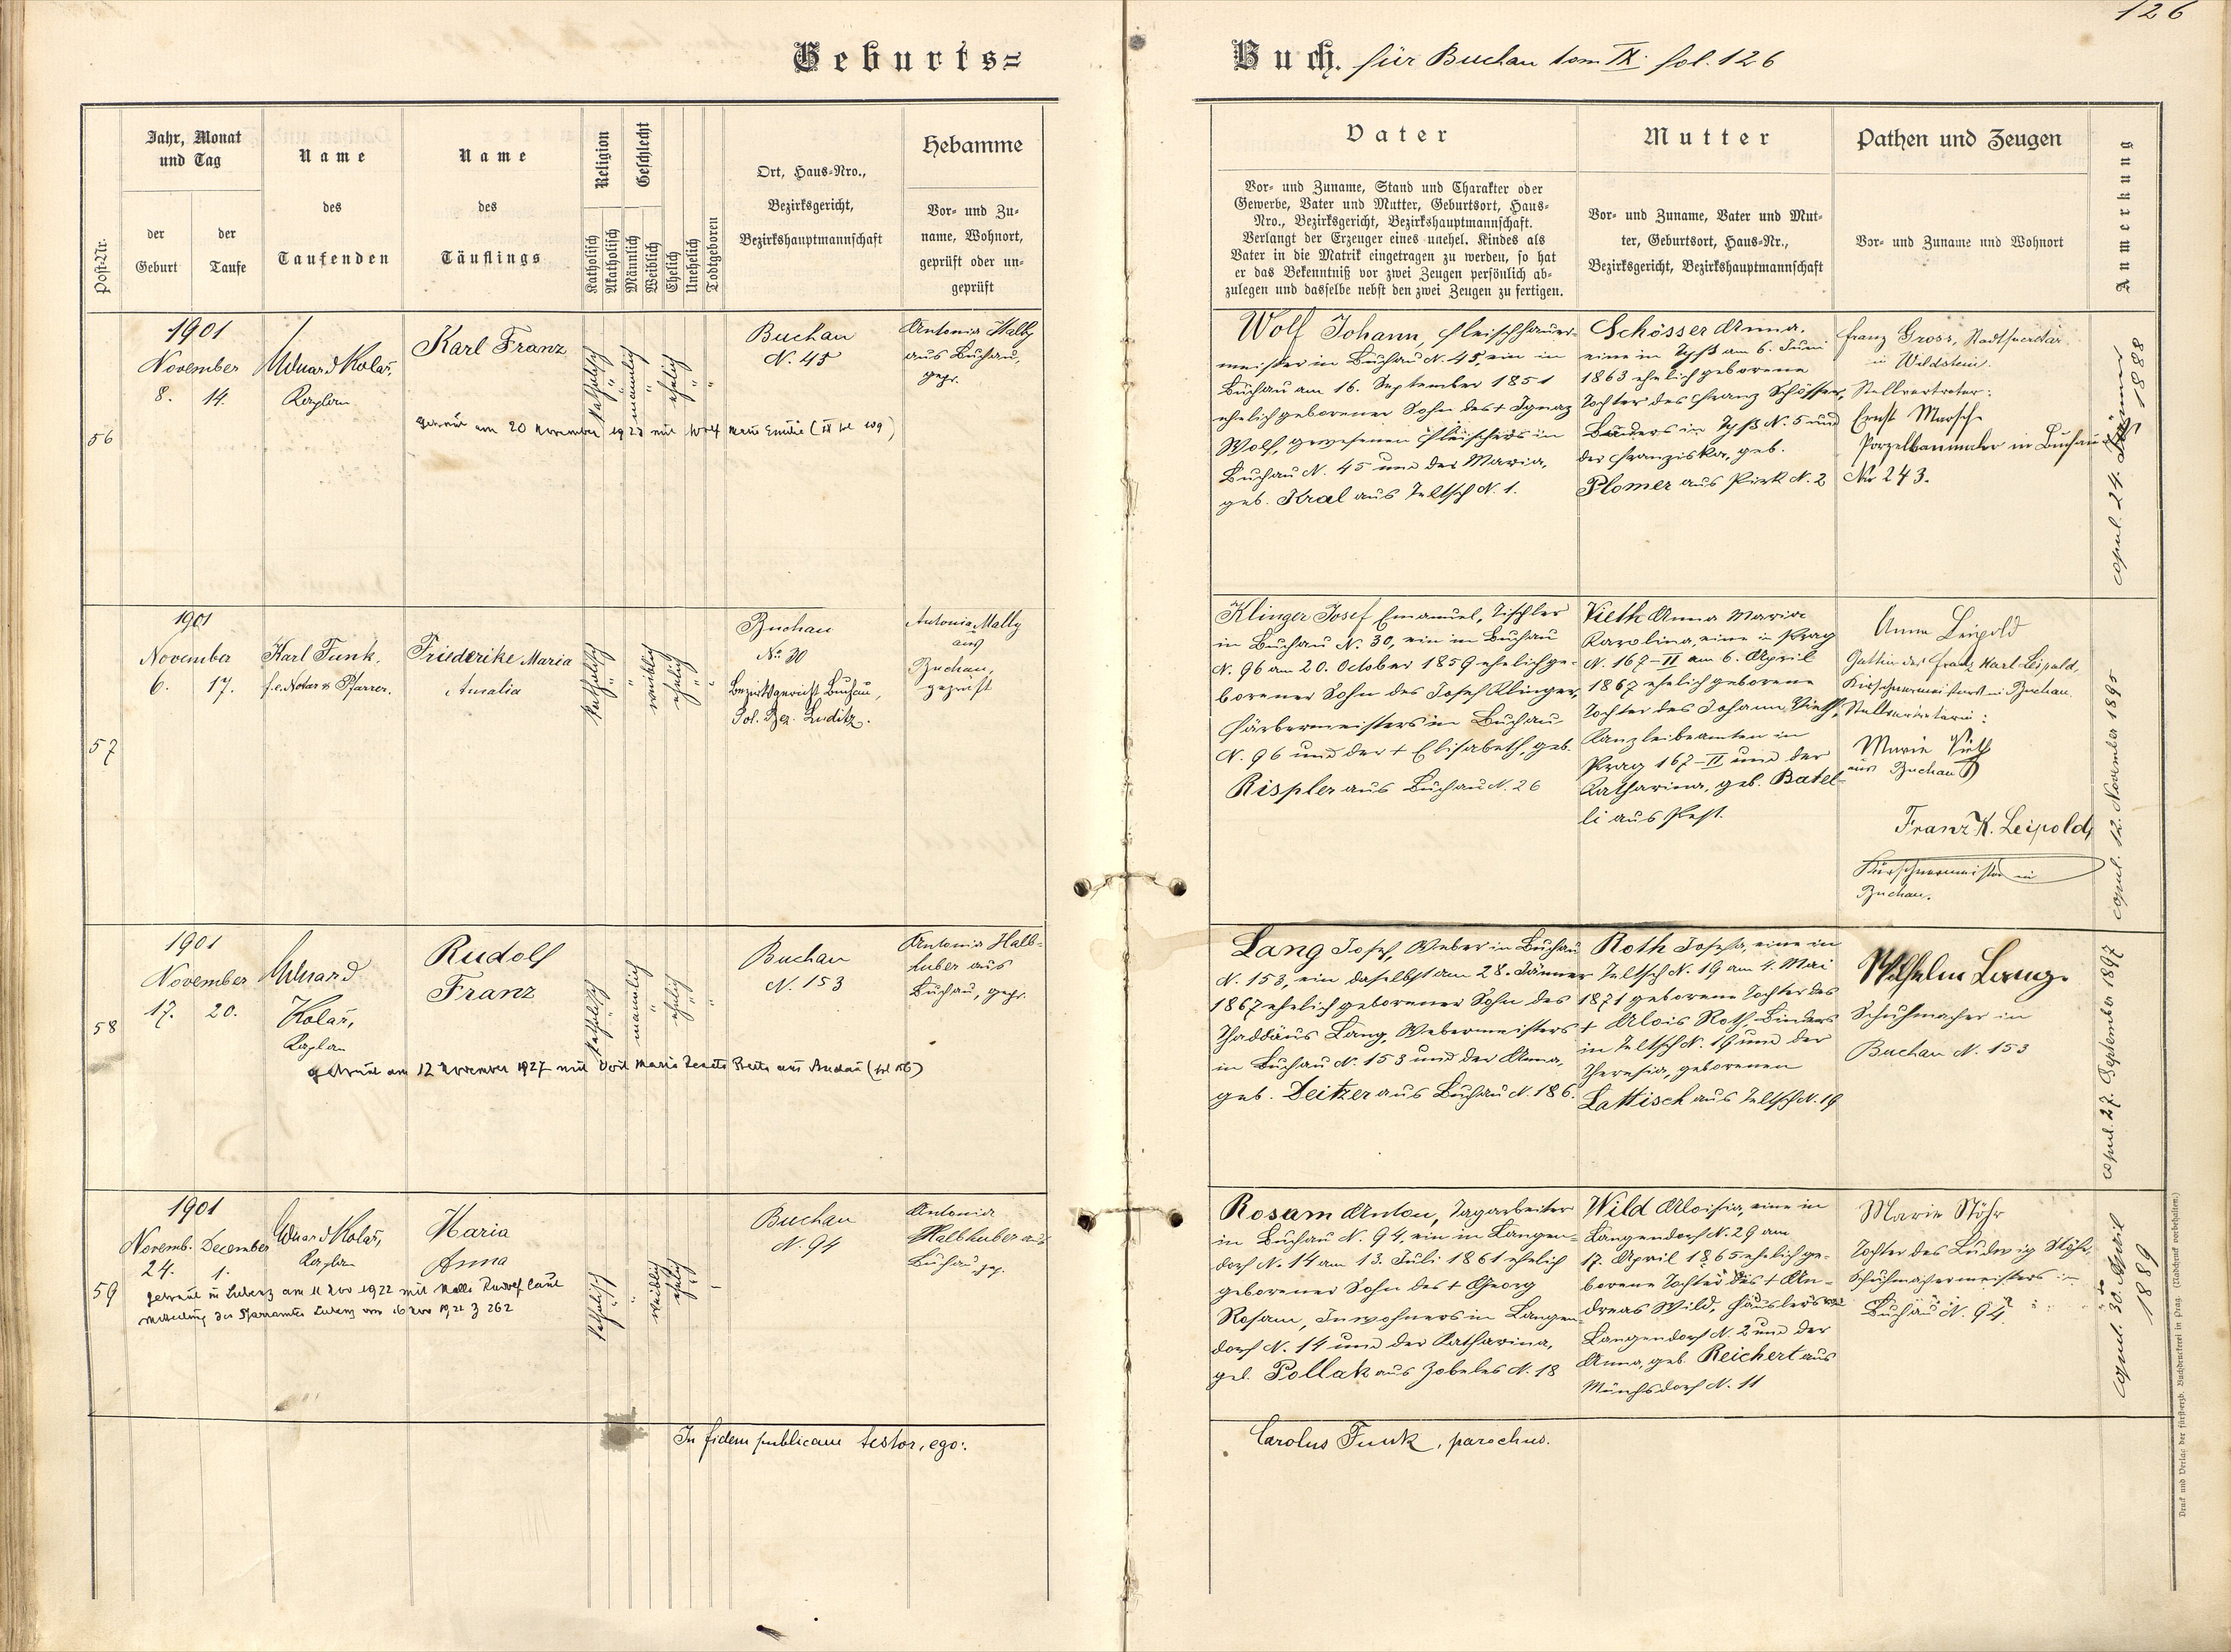 126
Geburts=
Buch. für Buchau tom IX. fol. 126
Post-Nr.
Jahr, Monat
und Tag
der
Geburt
der
Taufe
Name
des
Taufenden
Name
des
Täuflings
Religion
Katholisch
Akatholisch
Geschlecht
Männlich
Weiblich
Ehelich
Unehelich
Todtgeboren
Ort, Haus-Nro.,
Bezirksgericht,
Bezirkshauptmannschaft
Hebamme
Vor- und Zu-
name, Wohnort,
geprüft oder un-
geprüft
Vater
Vor- und Zuname, Stand und Charakter oder
Gewerbe, Vater und Mutter, Geburtsort, Haus-
Nro., Bezirksgericht, Bezirkshauptmannschaft.
Verlangt der Erzeuger eines unehel. Kindes als
Vater in die Matrik eingetragen zu werden, so hat
er das Bekenntniß vor zwei Zeugen persönlich ab-
zulegen und dasselbe nebst den zwei Zeugen zu fertigen.
Mutter
Vor- und Zuname, Vater und Mut-
ter, Geburtsort, Haus-Nr.,
Bezirksgericht, Bezirkshauptmannschaft
Pathen und Zeugen
Vor- und Zuname und Wohnort
Anmerkung
56
1901
November
8. 14.
Eduard Kolař,
Kaplan
Karl Franz
katholisch
männlich
ehelich
Buchau
N. 45
Antonia
aus Buchau,
gepr.
getraut am 20 November mit Wolf Marie Emilie
Wolf Johann, Fleischhauer-
meister in Buchau N. 45, ein in
Buchau am 16. September 1851
ehelich geborener Sohn des + Ignaz
Wolf, gewesenen Fleischers in
Buchau N. 45 und der Maria,
geb. Kral aus Teltsch N. 1.
Schösser Anna,
eine in Tyß am 6. Juni
1863 ehelich geborene
Tochter des Franz Schösser,
in Tyß N. 5 und
der Franziska, geb.
Plomer aus Pirk N. 2
Franz Gross, Stadtsecretär
in Wildstein.
Stellvertreter:
Ernst Marsch
Porzellanmaler in Buchau
No 243.
copul. 24. Jänner 1888
57
1901
November
6. 17.
Karl Funk,
f.e. Notar & Pfarrer.
Friederike Maria
Amalia
katholisch
weiblich
ehelich
Buchau
No. 30
Bezirksgericht Buchau,
Pol. Bez. Luditz.
Antonia Mally
aus
Buchau,
geprüft
Klinger Josef Emanuel, Tischler
in Buchau N. 30, ein in Buchau
N. 96 am 20. October 1859 ehelich ge-
borener Sohn des Josef Klinger,
Färbermeisters in Buchau
N. 96 und der + Elisabeth, geb.
Rispler aus Buchau N. 26
Vieth Anna Maria
Karolina, eine in Prag
N. 167-II am 6. April
1867 ehelich geborene
Tochter des Johann Vieth,
Kanzleibeamten in
Prag 167-II und der
Katharina, geb. Batel-
li aus Pest.
Anna Leipold
Gattin des Franz Karl Leipold,
Kürschnermeisters in Buchau.
Stellvertreterin:
Marie Vieth
aus Buchau
Franz K. Leipold,
Kürschnermeister in
Buchau.
copul. 12. November 1895
58
1901
November
17. 20.
Eduard
Kolař,
Kaplan
Rudolf
Franz
katholisch
männlich
ehelich
Buchau
N. 153
Antonia Halb-
huber aus
Buchau, gepr.
getraut am 12 November 1927 mit Maria
Lang Josef, Weber in Buchau
N. 153, ein daselbst am 28. Jänner
1867 ehelich geborener Sohn des
Thaddäus Lang, Webermeisters
in Buchau N. 153 und der Anna,
geb. Deitzer aus Buchau N. 186.
Roth Josefa, eine in
Teltsch N. 19 am 4. Mai
1871 geborene Tochter des
+ Alois Roth, Binders
in Teltsch N. 19 und der
Theresia, geborenen
Lattisch aus Teltsch N. 19
Wilhelm Lang.
Schuhmacher in
Buchau N. 153
copul. 27. September 1897
59
1901
Novemb. December
24. 1.
Eduard Kolař,
Kaplan
Maria
Anna
katholisch
weiblich
ehelich
Buchau
N. 94
Antonia
Halbhuber aus
Buchau gep.
getraut in Lubenz am 11 Nov 1922 mit Rudolf laut
Mitteilung des Pfarramtes Lubenz vom 16 Nov 1922 Z 262
Rosam Anton, Tagarbeiter
in Buchau N. 94, ein in Langen-
dorf N. 14 am 13. Juli 1861 ehelich
geborener Sohn des + Georg
Rosam, Inwohners in Langen-
dorf N. 14 und der Katharina,
geb. Pollak aus Zobeles N. 18
Wild Aloisia, eine in
Langendorf N. 29 am
17. April 1865 ehelich ge-
borene Tochter des + An-
dreas Wild, Häuslers aus
Langendorf N. 2 und der
Anna, geb. Reichert aus
Münchsdorf N. 11
Marie Stöhr
Tochter des Ludwig Stöhr,
Schuhmachermeisters in
Buchau N. 94
copul. 30. April 1889
In fidem publicam testor, ego:
Carolus Funk, parochus.
Druck und Verlag der fürst-erzb. Buchdruckerei in Prag. (Nachdruck vorbehalten.)